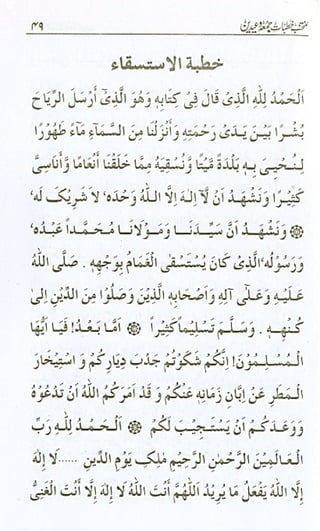 ۴۹ منتخب خطبات جمعہ و عیدین
خطبة الاستسقاء
اَلْحَمْدُ لِلّٰهِ الَّذِىْ قَالَ فِىْ كِتَابِهٖ وَهُوَ الَّذِىْٓ اَرْسَلَ الرِّيَاحَ
بُشْرًا بَيْنَ يَدَىْ رَحْمَتِهٖ وَاَنْزَلْنَا مِنَ السَّمَآءِ مَآءً طَهُوْرًا
لِنُحْيِىَ بِهٖ بَلْدَةً مَّيْتًا وَّنُسْقِيَهٗ مِمَّا خَلَقْنَا اَنْعَامًا وَّاَنَاسِىَّ
كَثِيْرًا وَنَشْهَدُ اَنْ لَّآ اِلٰهَ اِلَّا اللّٰهُ وَحْدَهٗ لَا شَرِيْكَ لَهٗ
وَنَشْهَدُ اَنَّ سَيِّدَنَا وَمَوْلَانَا مُحَمَّداً عَبْدُهٗ
وَرَسُوْلُهٗ الَّذِىْ كَانَ يُسْتَسْقَى الْغَمَامُ بِوَجْهِهٖ . صَلَّى اللّٰهُ
عَلَيْهِ وَعَلٰى آلِهٖ وَاَصْحَابِهِ الَّذِيْنَ وَصَلُوْا مِنَ الدِّيْنِ اِلٰى
كُنْهِهٖ . وَسَلَّمَ تَسْلِيْمًا كَثِيْراً اَمَّا بَعْدُ! فَيَا اَيُّهَا
الْمُسْلِمُوْنَ! اِنَّكُمْ شَكَوْتُمْ جَدْبَ دِيَارِكُمْ وَ اسْتِيْخَارَ
الْمَطَرِ عَنْ اِبَّانِ زَمَانِهٖ عَنْكُمْ وَ قَدْ اَمَرَكُمُ اللّٰهُ اَنْ تَدْعُوْهُ
وَوَعَدَكُمْ اَنْ يَسْتَجِيْبَ لَكُمْ اَلْحَمْدُ لِلّٰهِ رَبِّ
الْعَالَمِيْنَ الرَّحْمٰنِ الرَّحِيْمِ مٰلِكِ يَوْمِ الدِّيْنِ ...... لَا اِلٰهَ
اِلَّا اللّٰهُ يَفْعَلُ مَا يُرِيْدُ اَللّٰهُمَّ اَنْتَ اللّٰهُ لَا اِلٰهَ اِلَّا اَنْتَ الْغَنِىُّ